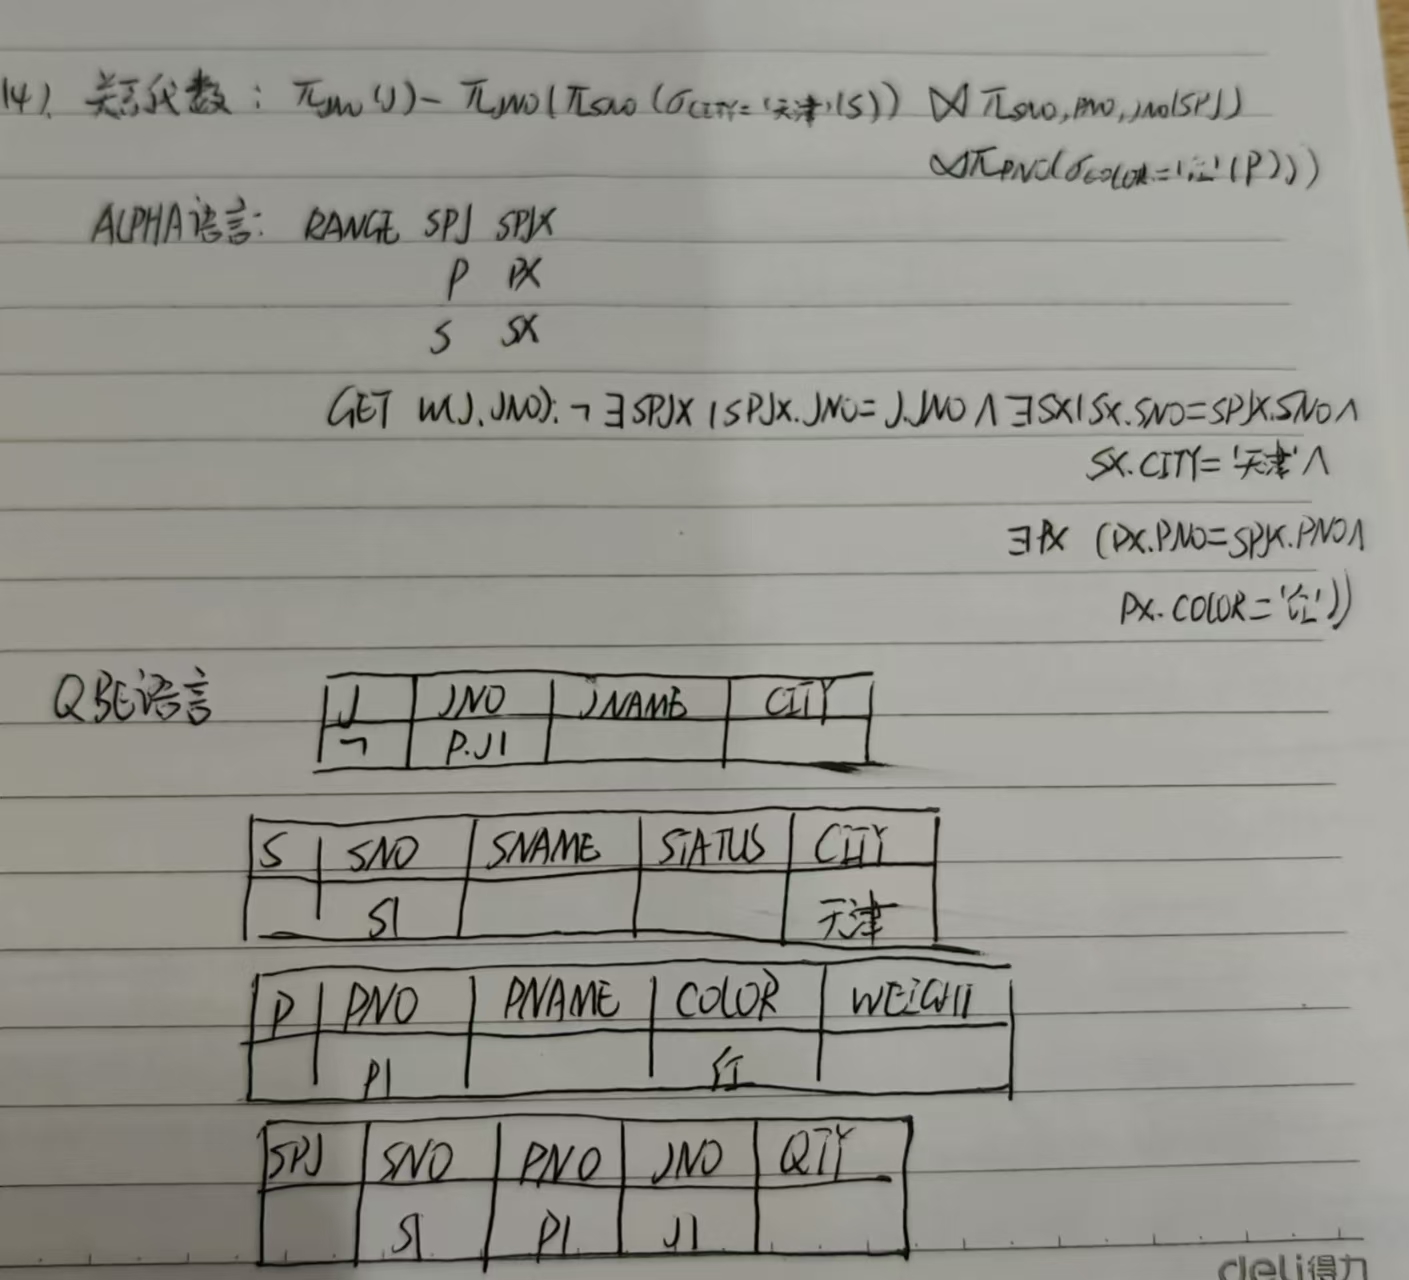 (4). 关系代数: πJNO(J)- πJNO(πSNO(σCITY='天津'(S)) ⋈ πSNO,PNO,JNO(SPJ)
⋈πPNO(σCOLOR='红'(P)))
ALPHA语言: RANGE SPJ SPJX
P PX
S SX
GET W(J.JNO): ¬∃SPJX(SPJX.JNO=J.JNO∧∃SX(SX.SNO=SPJX.SNO∧
SX.CITY='天津'∧
∃PX (PX.PNO=SPJX.PNO∧
PX.COLOR='红'))
QBE语言
J JNO JNAME CITY
¬ P.J1
S SNO SNAME STATUS CITY
S1 天津
P PNO PNAME COLOR WEIGHT
P1 红
SPJ SNO PNO JNO QTY
S1 P1 J1
deli得力